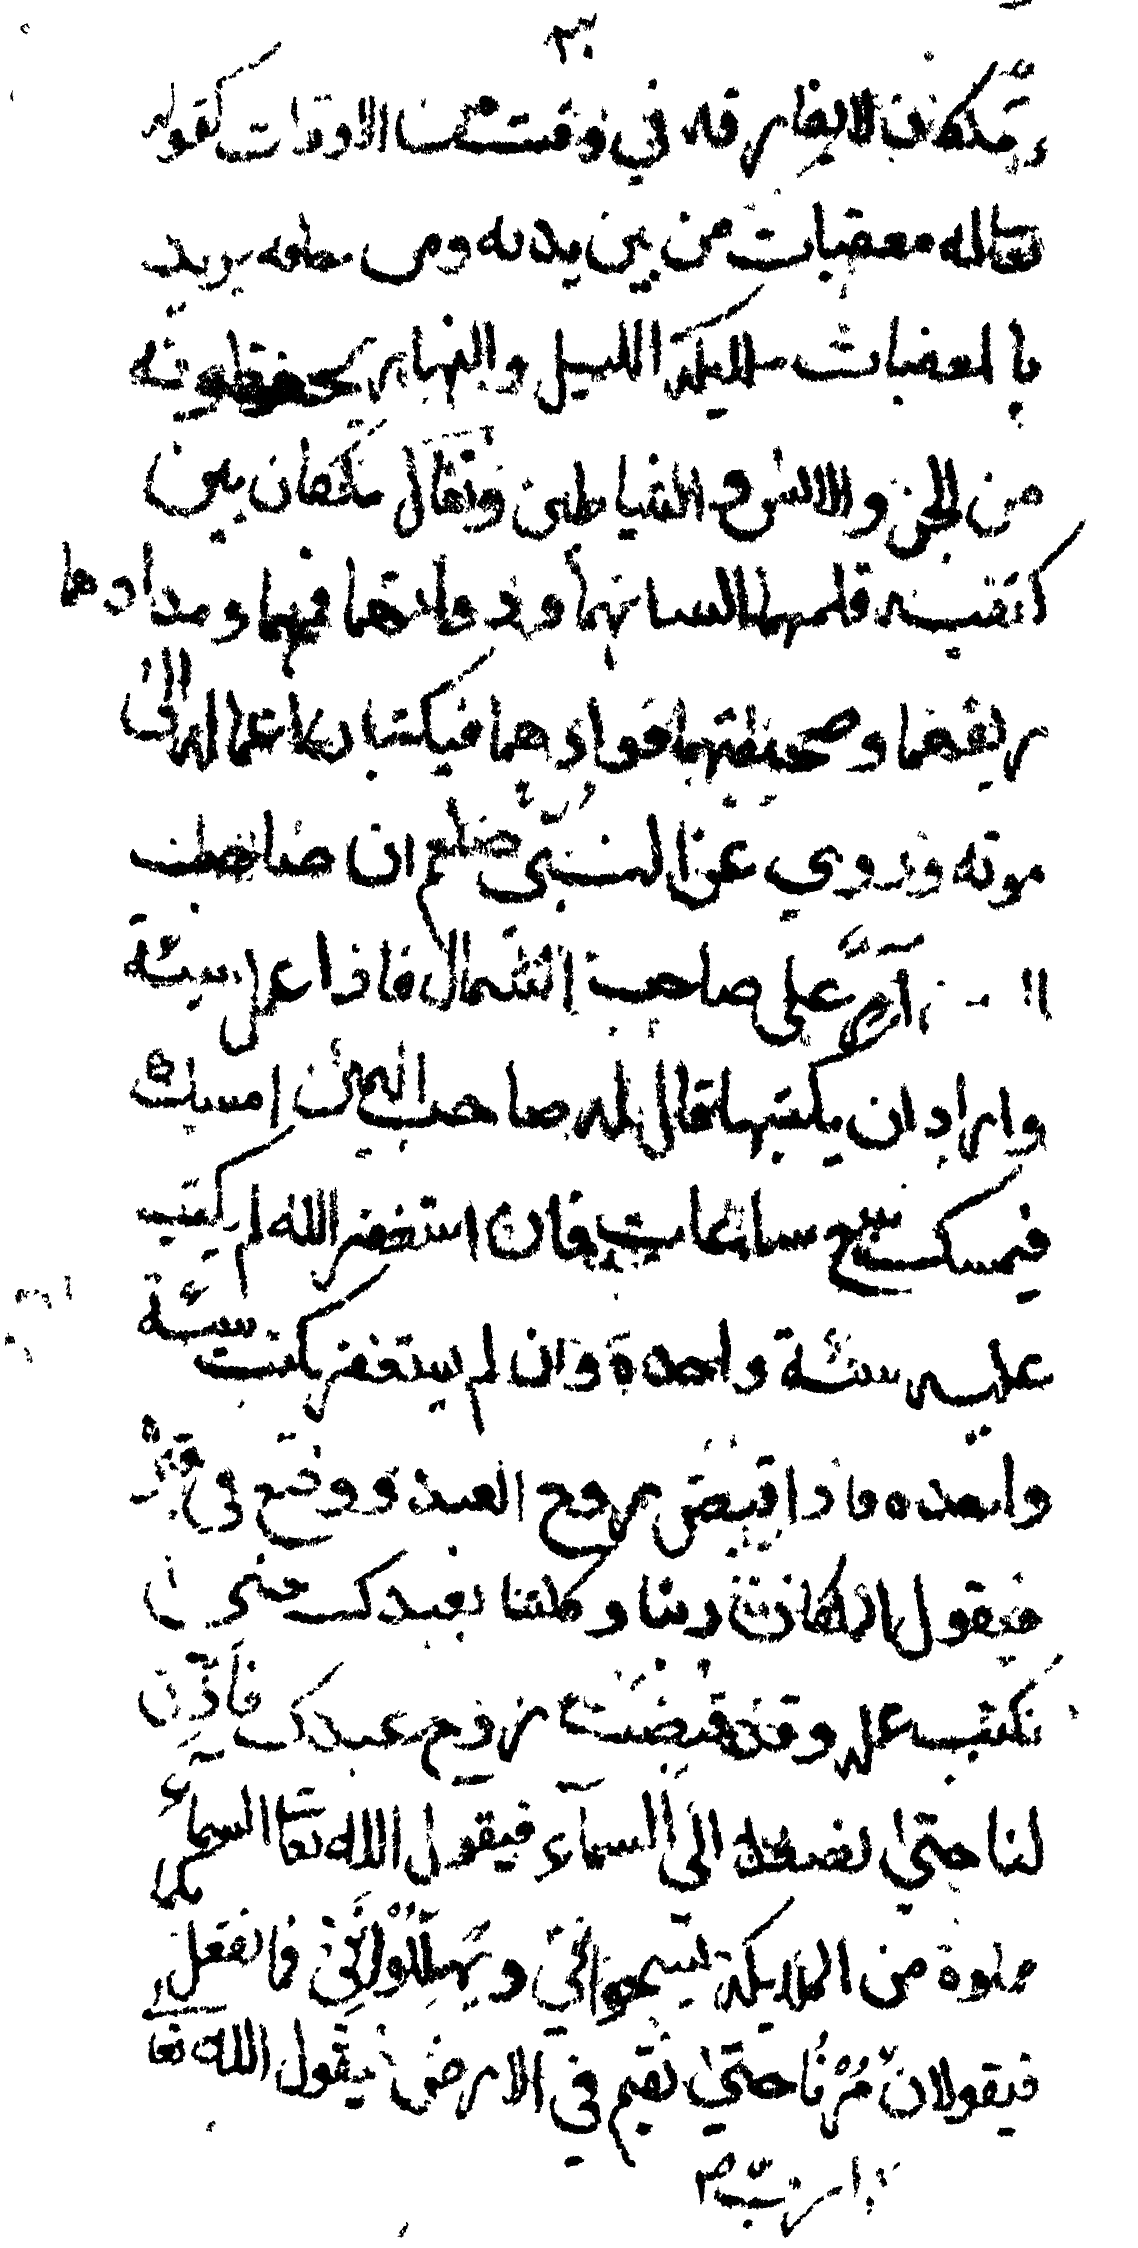 وملكان لا يفارقه في وقت من الاوقات كقوله
تعاله معقبات من بين يديه ومن خلفه يريد
بالمعقبات ملايكة الليل والنهار يحفظونه
من الجن والانس والشياطين ويقال ملكان بين
كتفيه قلمهما لسانهما ودواتهما فمهما ومدادها
ريقهما وصحيفتهما فوادهما فيكتبان اعماله الى
موته وروي عن النبي صلعم ان صاحب
ال امير على صاحب الشمال فاذا عمل سيئة
واراد ان يكتبها قال له صاحب اليمين امسك
فيمسك سبع ساعات فان استغفر الله لم يكتب
عليه سيئة واحدة وان لم يستغفر كتب سيئة
واحده فاذا قبض روح العبد ووضع في قبره
فيقول الملكان ربنا وكلتنا بعبدك حتى
نكتب عمله وقد قبضت روح عبدك فأذن
لنا حتى نصعد الى السمآء فيقول الله تعا السمآء
مملوة من الملايكة يسبحوانني ويهللوانني فما نفعل بكما
فيقولان مرنا حتى نقيم في الارض فيقول الله تعا